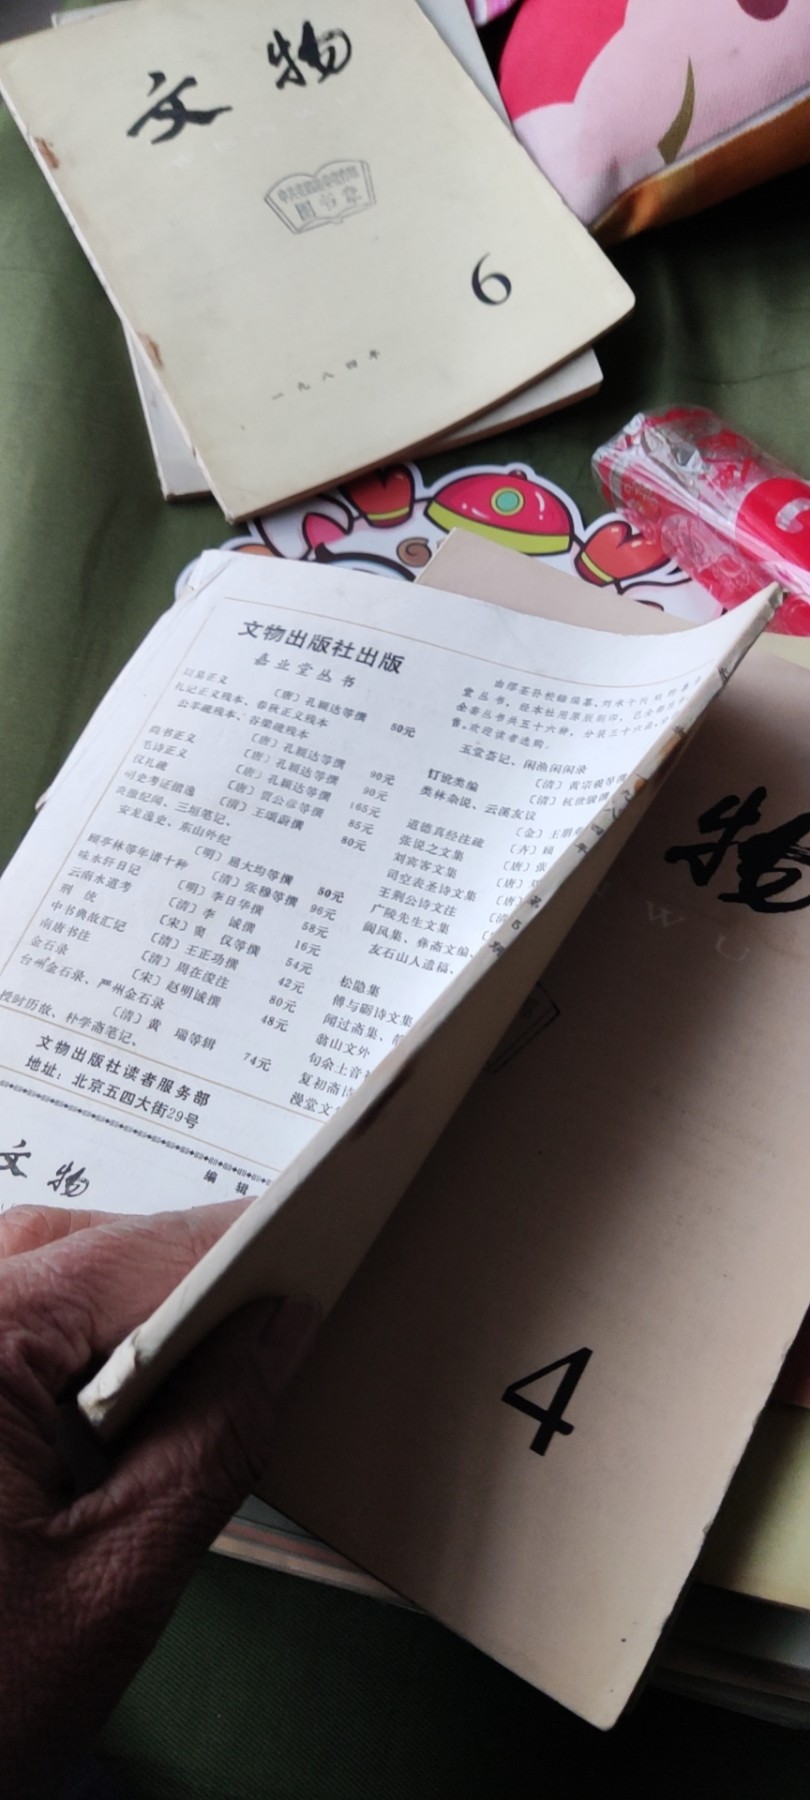 文物
图书章
6
一九八四年
文物出版社出版
嘉业堂丛书
以易正义 〔唐〕孔颖达等撰 50元
礼记正义残本、春秋正义残本
公羊疏残本、谷梁疏残本
〔唐〕孔颖达等撰 90元
尚书正义 〔唐〕孔颖达等撰 90元
毛诗正义 〔唐〕孔颖达等撰 165元
仪礼疏 〔唐〕贾公彦等撰 85元
明史考证攟逸 〔清〕王颂蔚撰 80元
三垣笔记、
安龙逸史、东山外纪
〔明〕屈大均等撰 50元
顾亭林等年谱十种 〔清〕张穆等撰 96元
味水轩日记 〔明〕李日华撰 58元
云南水道考 〔清〕李 诚撰 16元
刑统 〔宋〕窦 仪等撰 54元
中书典故汇记 〔清〕王正功撰 42元
南唐书注 〔清〕周在浚注 80元
金石录 〔宋〕赵明诚撰 48元
台州金石录、严州金石录
〔清〕黄 瑞等辑 74元
授时历故、朴学斋笔记、
由缪荃孙校勘编纂、刘承干刊
堂丛书，经本社用原版刷印，已全部
全套丛书共五十六种，分装三十六函
售。欢迎读者选购。
玉堂荟记、闲渔闲闲录
〔清〕黄宗羲等撰
订讹类编 〔清〕杭世骏撰
类林杂说、云溪友议
〔金〕王朋
道德真经注疏 〔齐〕顾
张说之文集 〔唐〕张
刘宾客文集 〔唐〕
司空表圣诗文集 〔唐〕
王荆公诗文注
广陵先生文集
阆风集、彝斋文编、
友石山人遗稿、
松隐集
傅与砺诗文集
闻过斋集、
翁山文外
句余土音
复初斋
漫堂文
文物出版社读者服务部
地址：北京五四大街29号
文物
编辑
物
WU
4